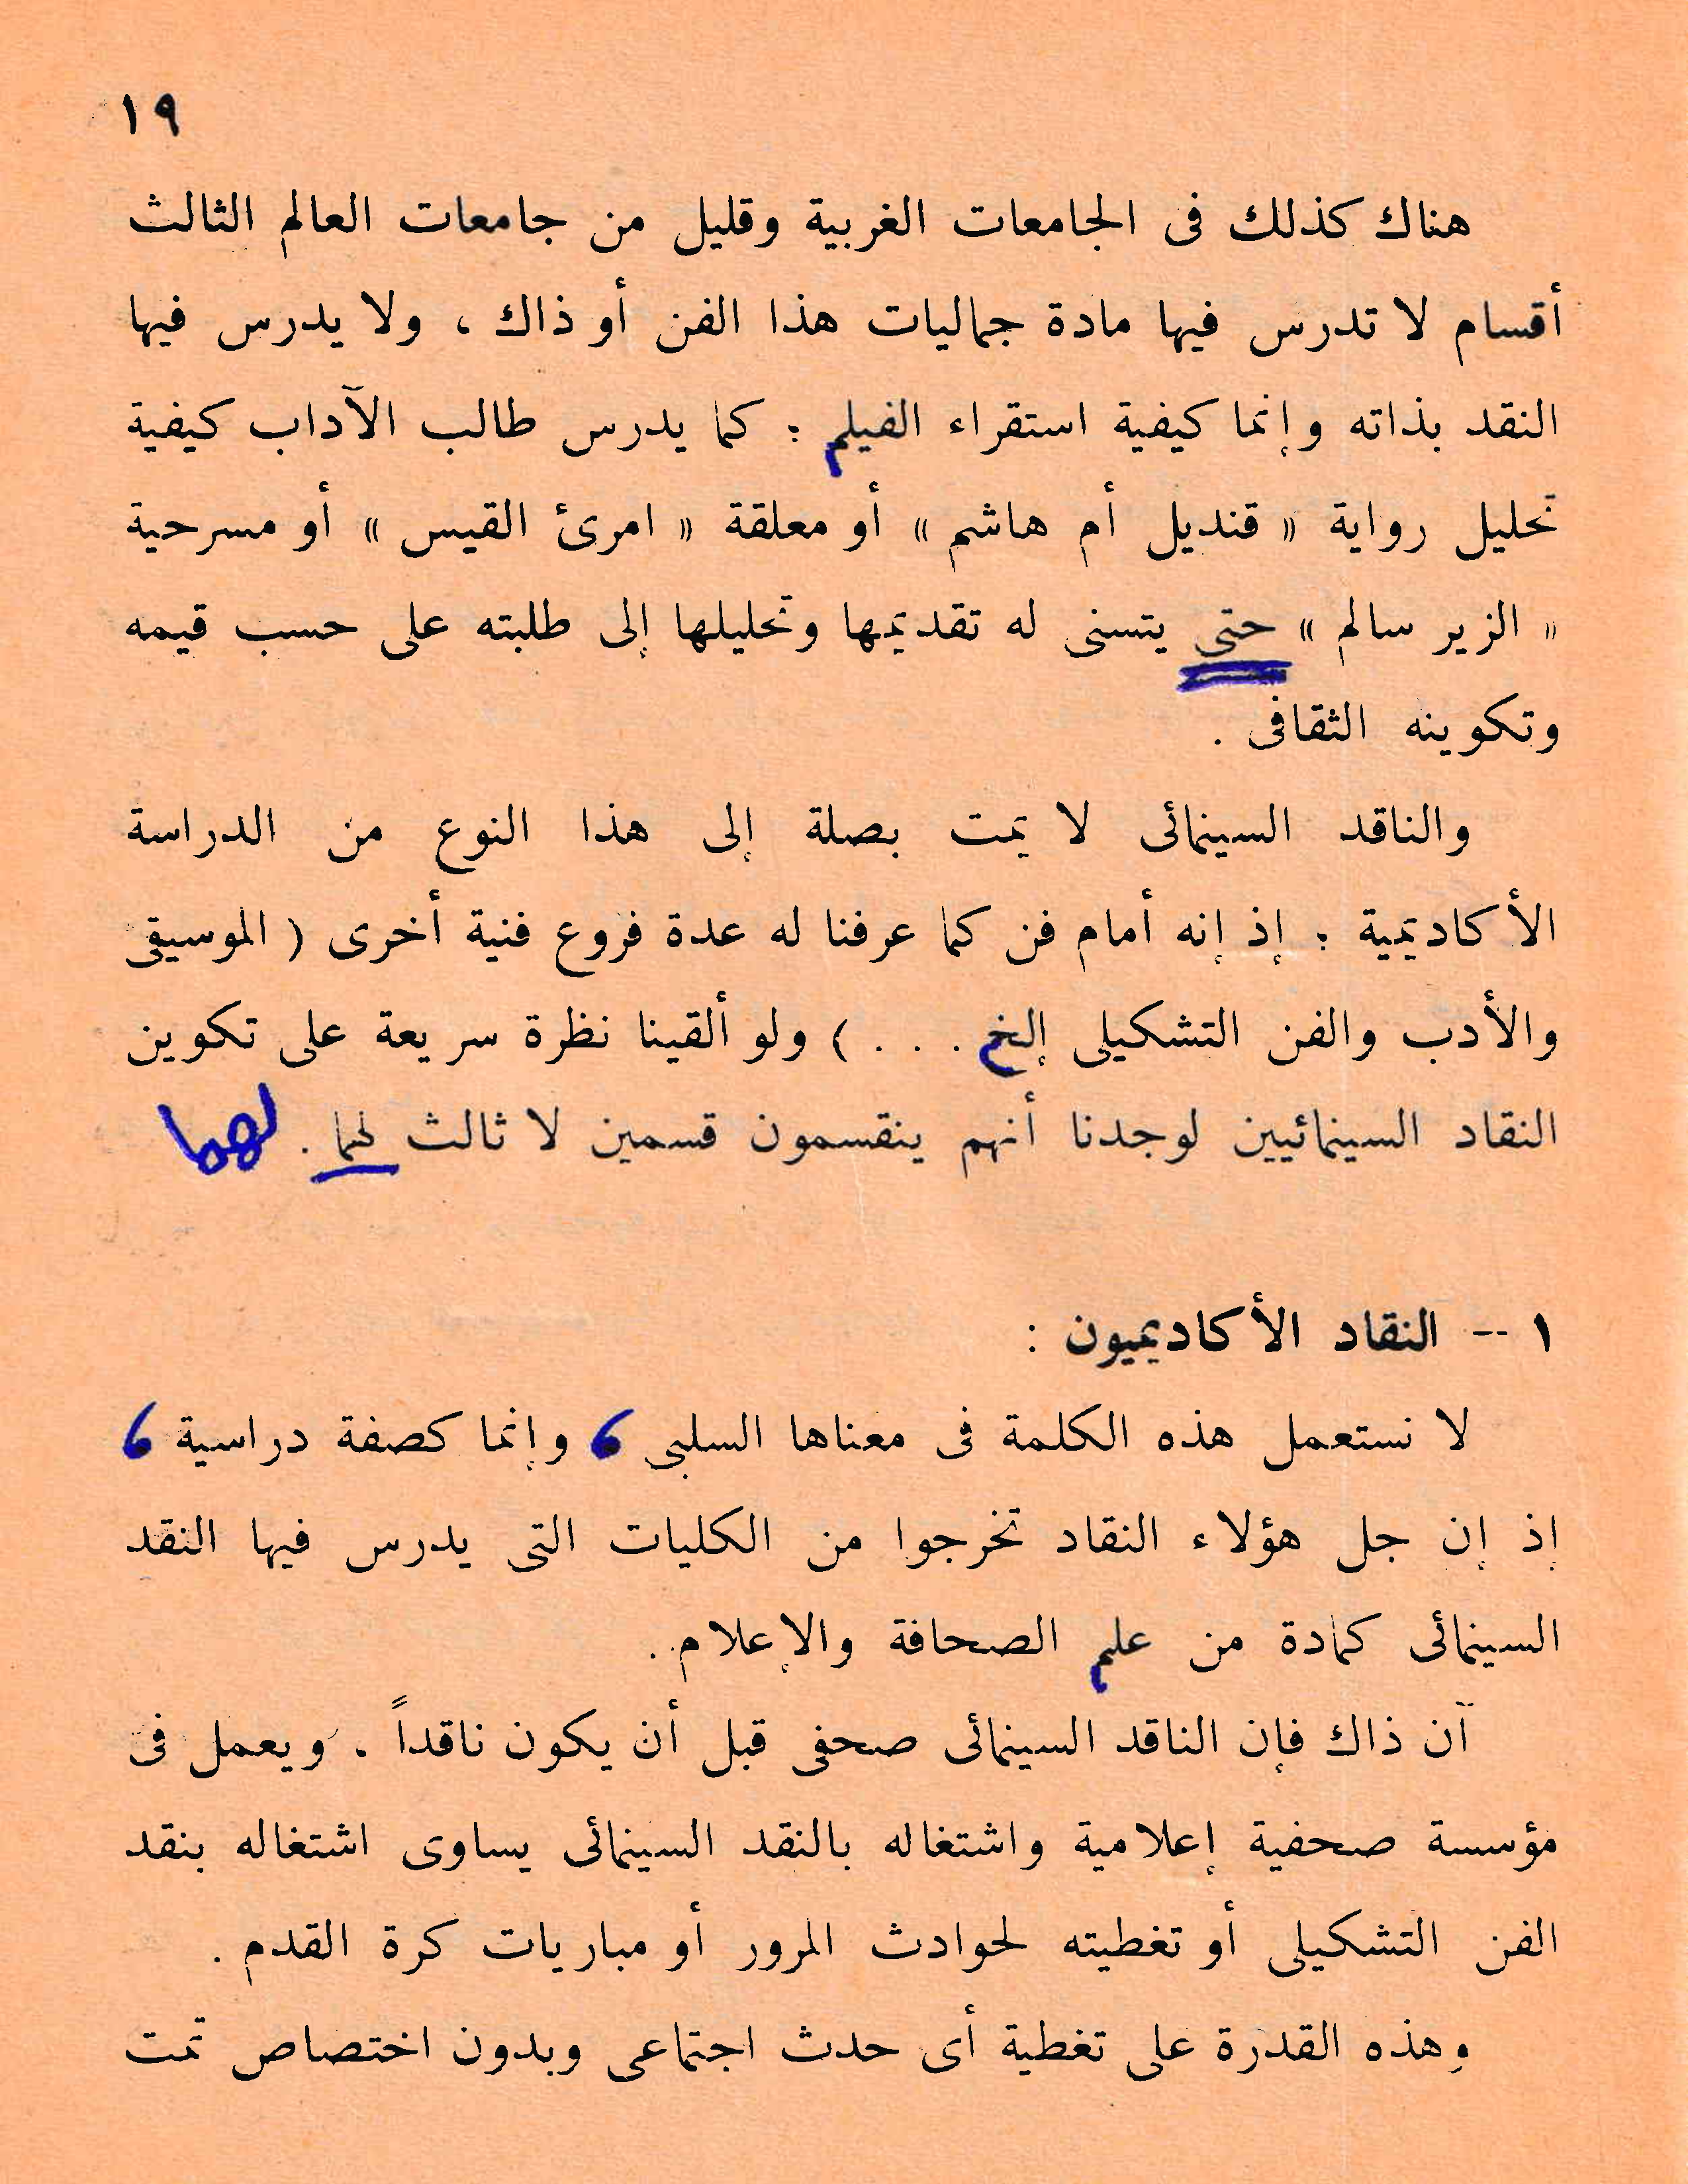 ١٩
هناك كذلك فى الجامعات الغربية وقليل من جامعات العالم الثالث
أقسام لا تدرس فيها مادة جماليات هذا الفن أو ذاك ، ولا يدرس فيها
النقد بذاته وإنما كيفية استقراء الفيلم ؛ كما يدرس طالب الآداب كيفية
تحليل رواية « قنديل أم هاشم » أو معلقة « امرئ القيس » أو مسرحية
« الزير سالم » حتى يتسنى له تقديمها وتحليلها إلى طلبته على حسب قيمه
وتكوينه الثقافى .
والناقد السينمائى لا يمت بصلة إلى هذا النوع من الدراسة
الأكاديمية ؛ إذ إنه أمام فن كما عرفنا له عدة فروع فنية أخرى ( الموسيقى
والأدب والفن التشكيلى إلخ . . . ) ولو ألقينا نظرة سريعة على تكوين
النقاد السينمائيين لوجدنا أنهم ينقسمون قسمين لا ثالث لهما . لهما
١ -- النقاد الأكاديميون :
لا نستعمل هذه الكلمة فى معناها السلبى ، وإنما كصفة دراسية ،
إذ إن جل هؤلاء النقاد تخرجوا من الكليات التى يدرس فيها النقد
السينمائى كمادة من علم الصحافة والإعلام .
آن ذاك فإن الناقد السينمائى صحفى قبل أن يكون ناقداً . ويعمل فى
مؤسسة صحفية إعلامية واشتغاله بالنقد السينمائى يساوى اشتغاله بنقد
الفن التشكيلى أو تغطيته لحوادث المرور أو مباريات كرة القدم .
وهذه القدرة على تغطية أى حدث اجتماعى وبدون اختصاص تمت